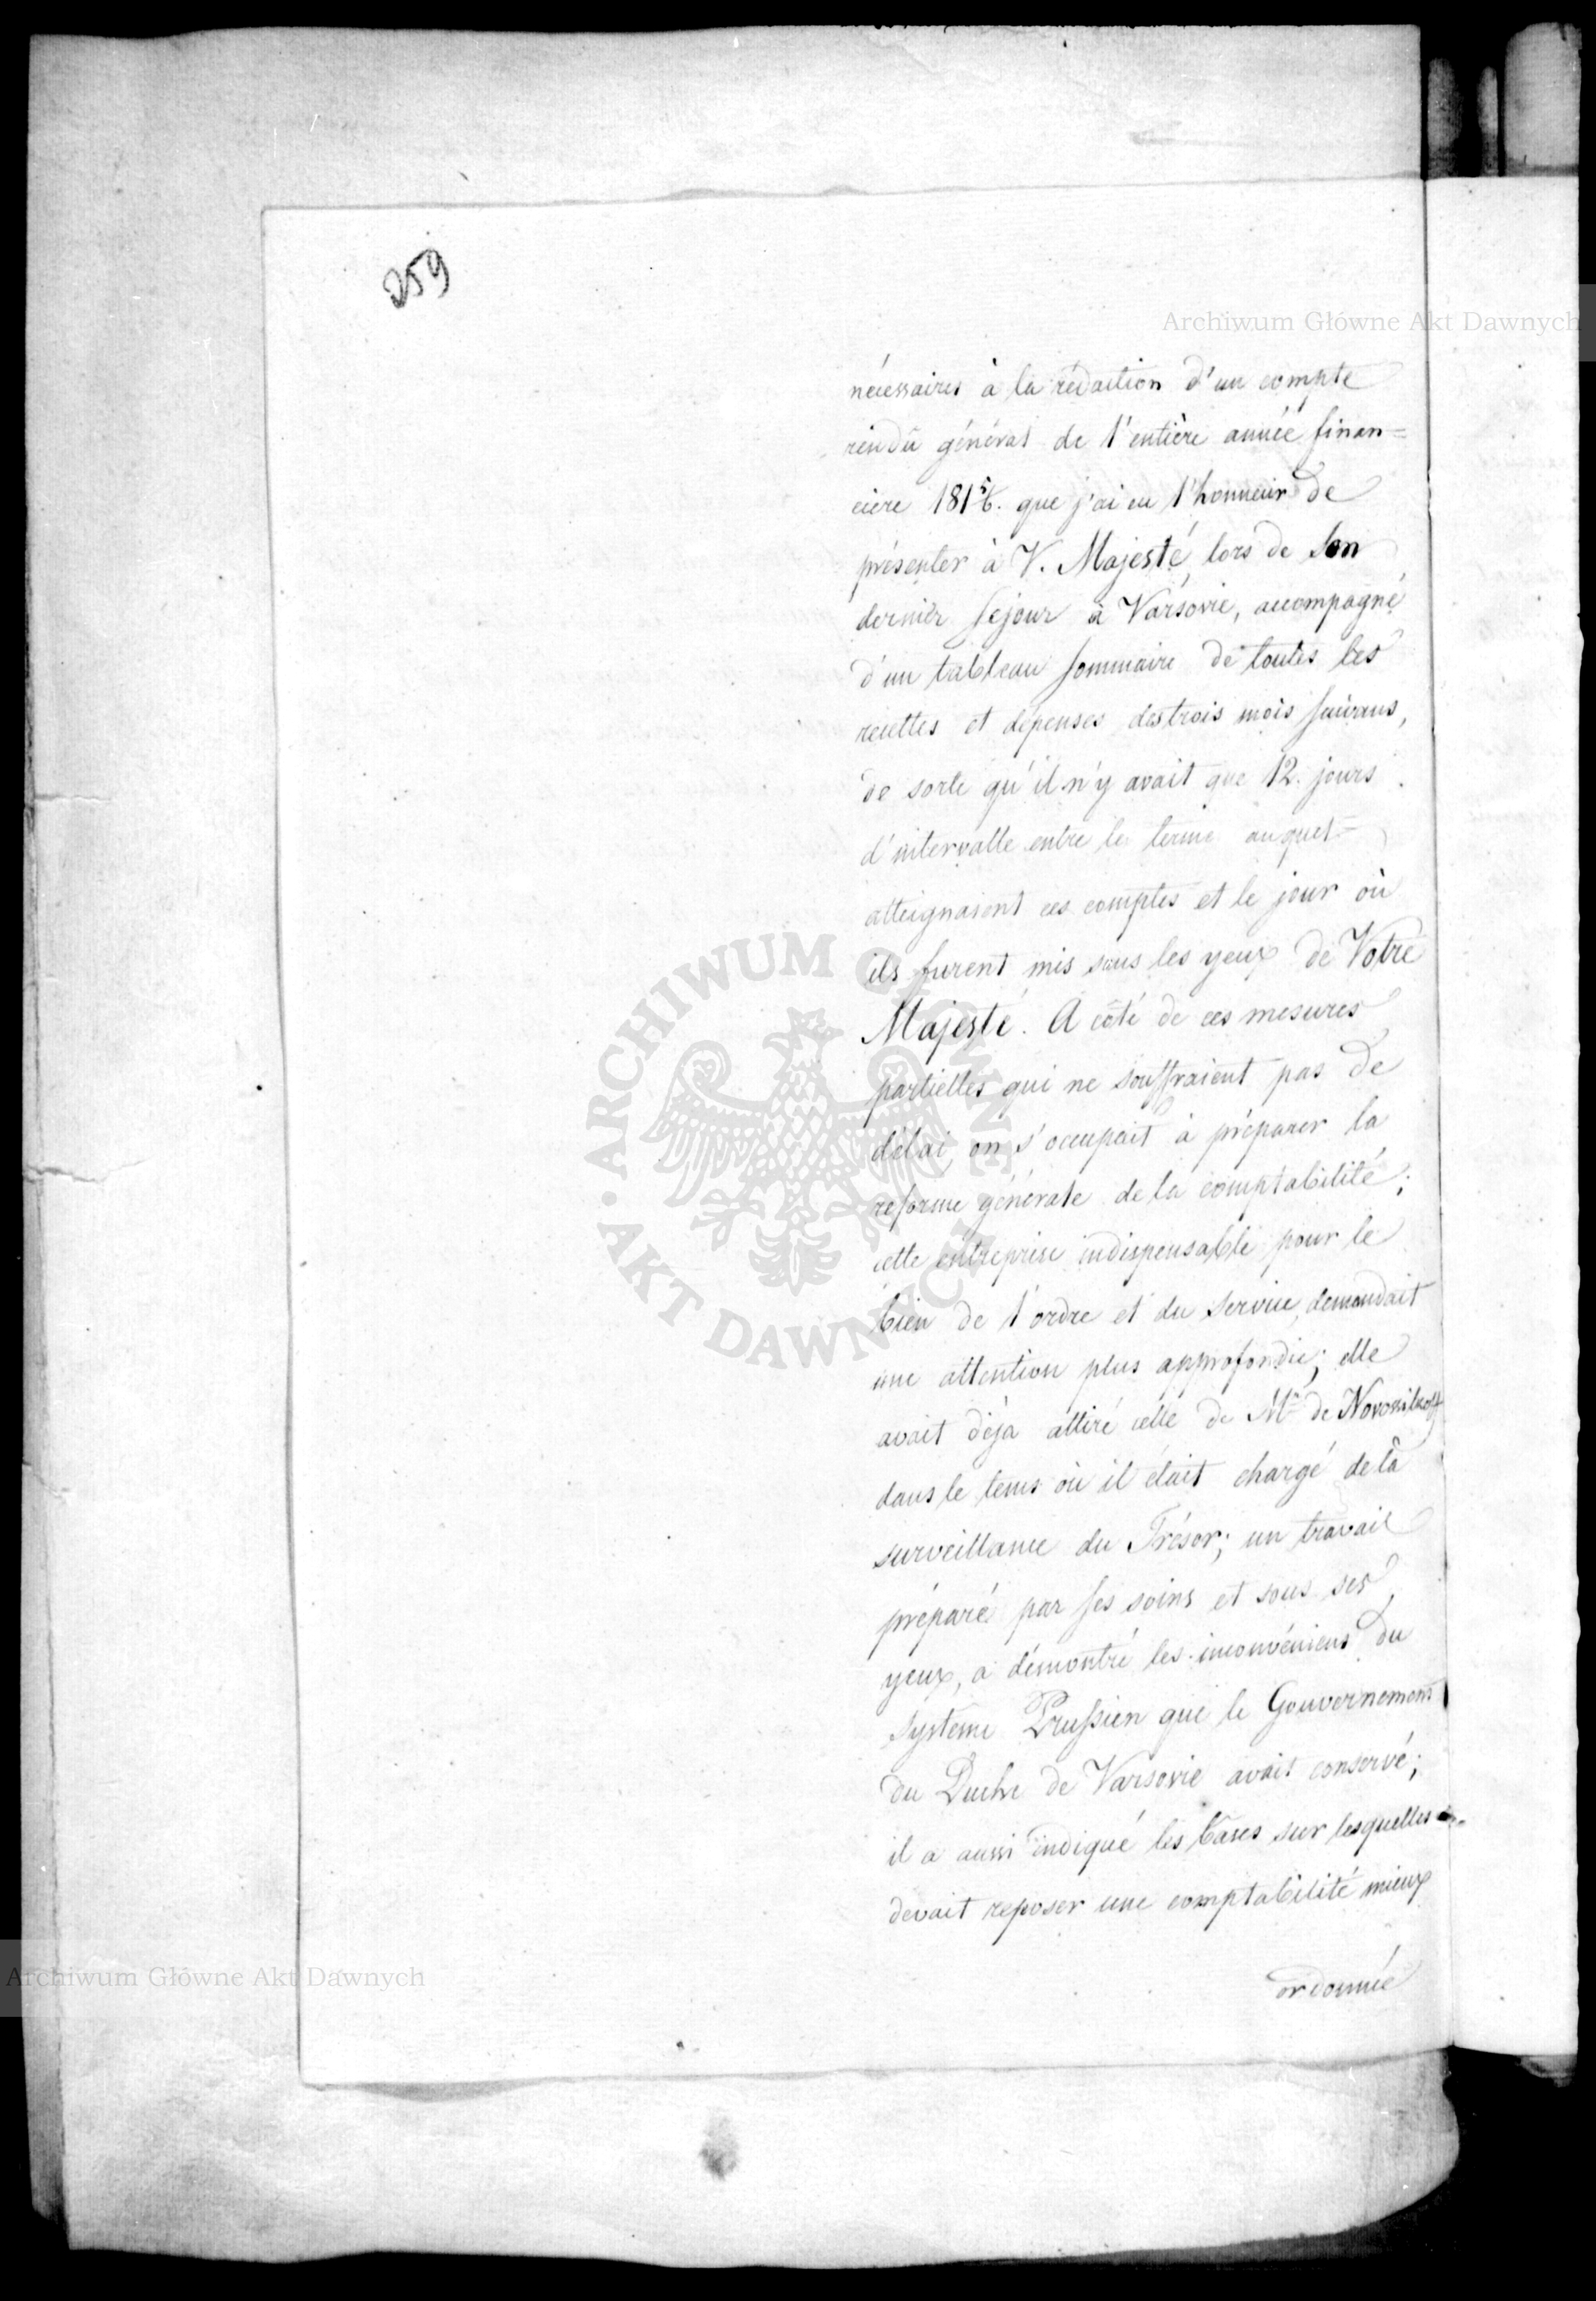 259
Archiwum Główne Akt Dawnych
nécessaires à la rédaction d'un compte
rendû général de l'entière année finan=
cière 181 5/6. que j'ai eu l'honneur de
présenter à V. Majesté, lors de Son
dernier séjour à Varsovie, accompagné
d'un tableau sommaire de toutes les
recettes et dépenses des trois mois suivans,
de sorte qu'il n'y avait que 12. jours
d'intervalle entre le terme auquel
atteignaient ces comptes et le jour où
ils furent mis sous les yeux de Votre
Majesté. A côté de ces mesures
partielles qui ne souffraient pas de
délai, on s'occupait à préparer la
reforme générale de la comptabilité;
cette entreprise indispensable pour le
bien de l'ordre et du service, demandait
une attention plus approfondie; elle
avait déja attiré celle de Mr de Novosiltzoff
dans le tems où il était chargé de la
surveillance du Trésor; un travail
préparé par ses soins et sous ses
yeux, a démontré les inconvéniens du
systeme Prussien que le Gouvernement
du Duché de Varsovie avait conservé;
il a aussi indiqué les bases sur lesquelles
devait reposer une comptabilité mieux
ordonnée
ARCHIWUM GŁÓWNE AKT DAWNYCH
Archiwum Główne Akt Dawnych